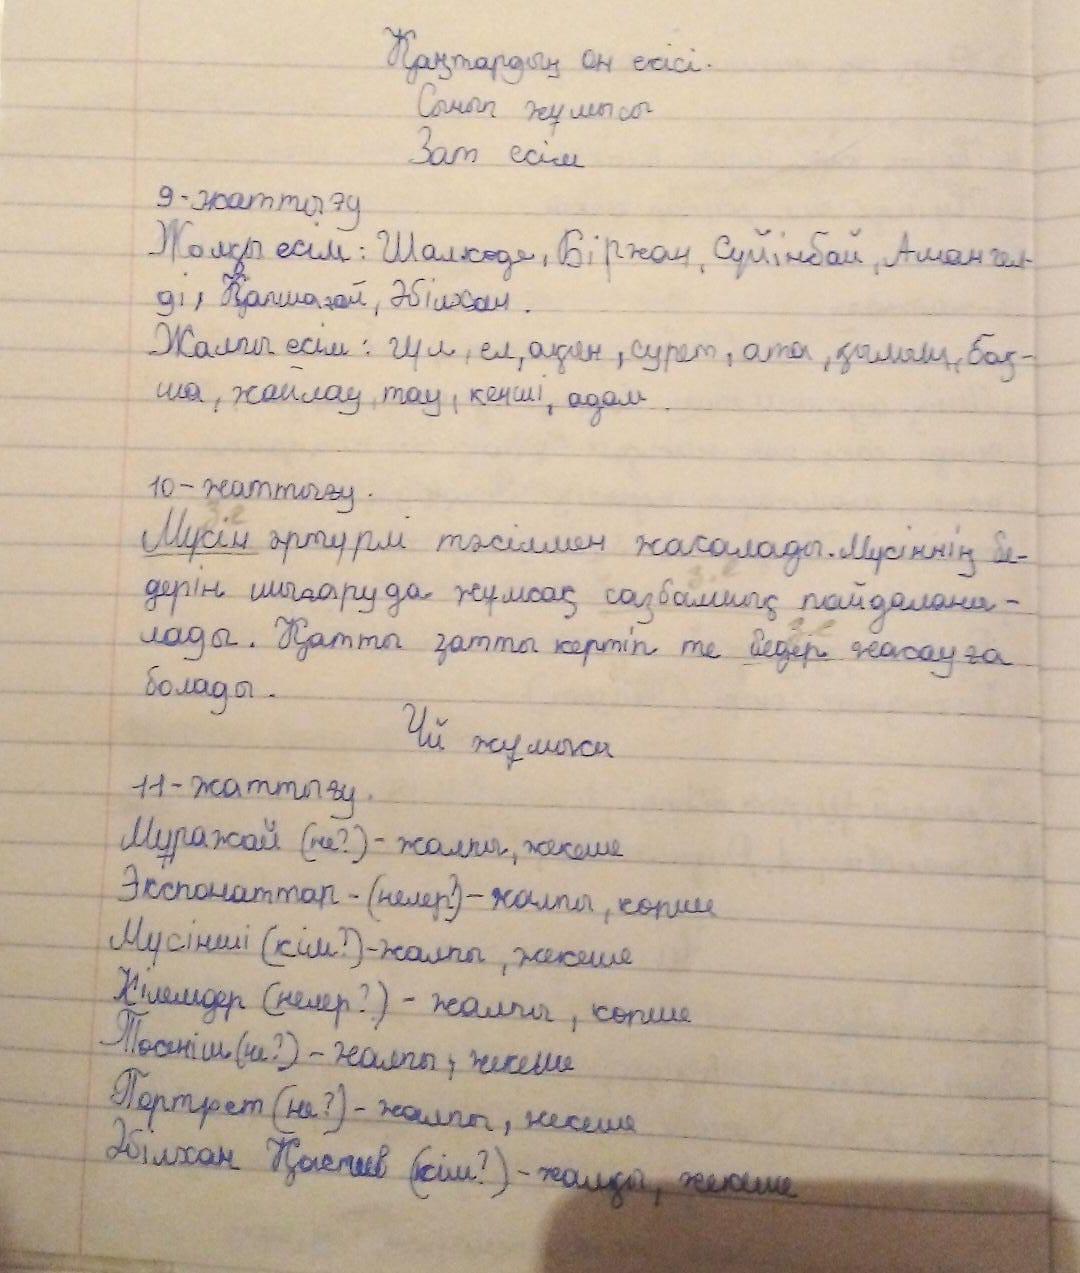 Қаңтардың он екісі.
Сынып жұмысы
Зат есім
9-жаттығу
Жалқы есім: Шалкөде, Біржан, Сүйінбай, Амангел-
ді, Қапшағай, Әбілхан.
Жалпы есім: гүл, ел, ақын, сурет, ата, қымыз, бақ-
ша, жайлау, тау, кенші, адам.
10-жаттығу.
з.е
Мүсін әртүрлі тәсілмен жасалады. Мүсіннің бе-
з.е
дерін шығаруда жұмсақ сазбалшық пайдалана-
з.е
лады. Қатты затты кертіп те бедер жасауға
болады.
Үй жұмысы
11-жаттығу.
Мұражай (не?)-жалпы, жекеше
Экспонаттар-(нелер?)-жалпы, көпше
Мүсінші (кім?)-жалпы, жекеше
Кілемдер (нелер?)-жалпы, көпше
Төсеніш (не?)-жалпы, жекеше
Портрет (не?)-жалпы, жекеше
Әбілхан Қастеев (кім?)-жалқы, жекеше